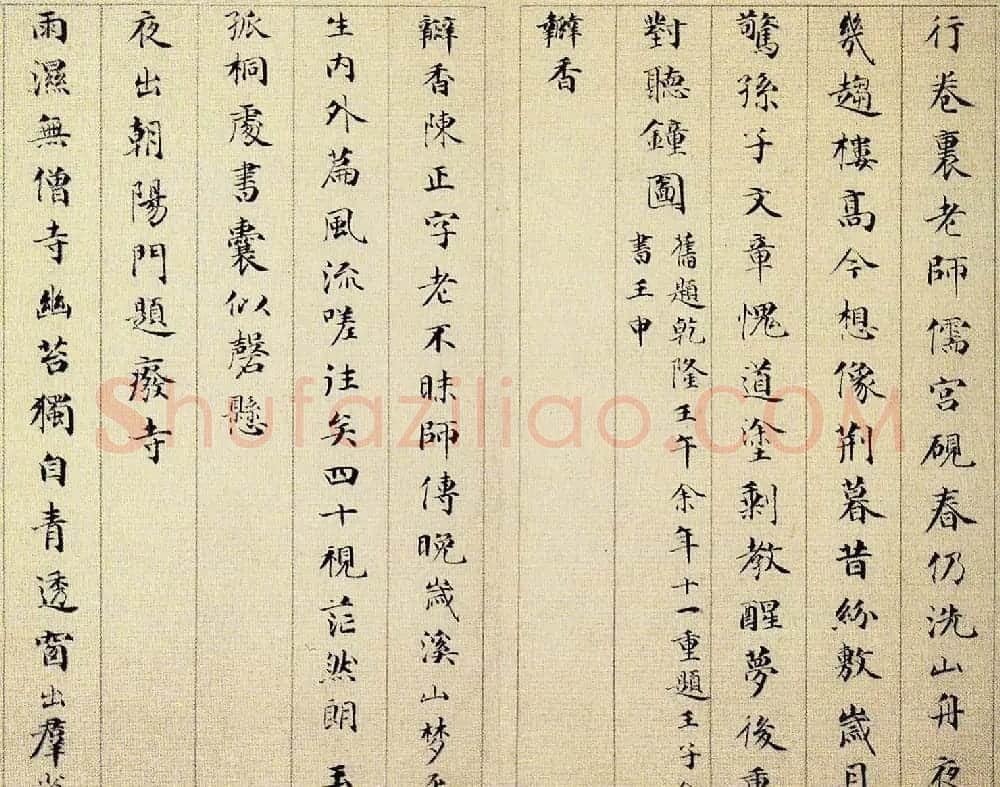 行卷裏老師儒宫硯春仍洗山舟夜
幾趨樓高今想像荆暮昔紛敷歲月
驚孫子文章愧道塗剩教醒夢後重
對聽鐘圖
舊題乾隆壬午余年十一重題壬子
書壬申
瓣香
瓣香陳正字老不昧師傳晚歲溪山梦
生内外篇風流嗟往矣四十視茫然朗
孤桐處書囊似磬懸
夜出朝陽門題廢寺
雨濕無僧寺幽苔獨自青透窗出羣
Shufaziliao.COM